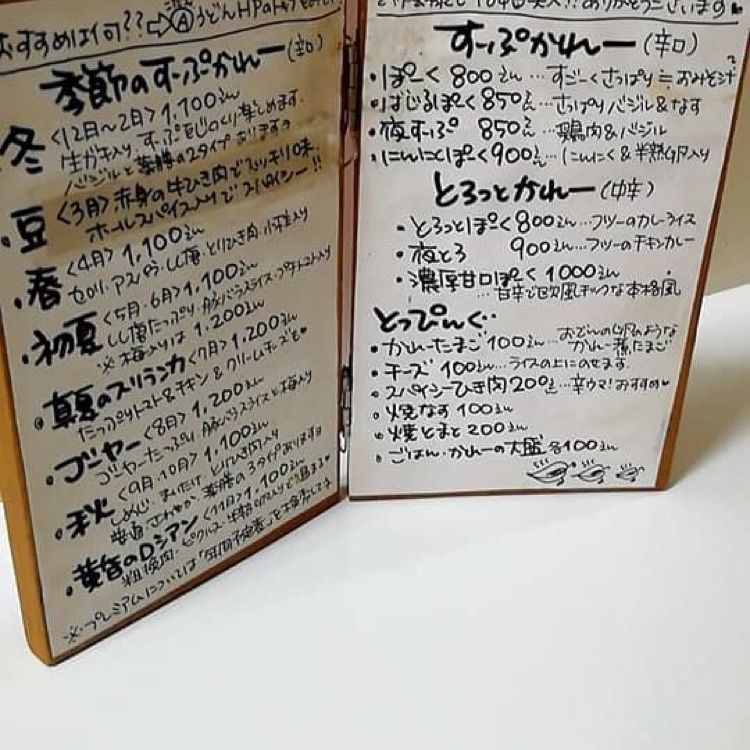 おすすめは何?? ⇨Ⓐ うどんHPの
季節のすーぷかれー(辛口)
冬 <12月~2月> 1,100えん
生ガキ入り、すーぷもじっくり楽しめます。
バジルと薬膳の2タイプあります
・豆 <3月> 赤身の牛ひき肉でスッキリ味
ホールスパイス入りでスパイシー!!
・春 <4月> 1,100えん
セロリ・アスパラ・しし唐・とりひき肉・入り
・初夏 <5月・6月> 1,100えん
しし唐たっぷり・豚バラスライス・プチトマト入り
※梅入りは1,200えん
・真夏のスリランカ <7月> 1,200えん
たっぷりトマト&チキン&クリームチーズも
・ゴーヤー <8月> 1,200えん
ゴーヤーたっぷり・豚バラスライスと梅入り
・秋 <9月・10月> 1,100えん
しめじ・まいたけ・とりひき肉入り
薬膳の3タイプあります
・黄昏のロシアン <11月> 1,100えん
粗挽肉・ピクルス・半熟
※プレミアムについては「年間予定表」を
10年目突入!! ありがとうございます
すーぷかれー(辛口)
・ぽーく 800えん…すごーくさっぱり≒おみそ汁
・ばじるぽーく 850えん…さっぱりバジル&なす
・夜すーぷ 850えん…鶏肉&バジル
・にんにくぽーく 900えん…にんにく&半熟卵入り
とろっとかれー(中辛)
・とろっとぽーく 800えん…フツーのカレーライス
・夜とろ 900えん…フツーのチキンカレー
・濃厚甘口ぽーく 1000えん
…甘辛で欧風チックな本格風
とっぴんぐ・
・かれーたまご 100えん…おでんの卵のようなかれー煮たまご
・チーズ 100えん…ライスの上にのせます
・スパイシーひき肉 200えん…辛ウマ!おすすめ
・焼なす 100えん
・焼とまと 200えん
・ごはん・かれーの大盛 各100えん